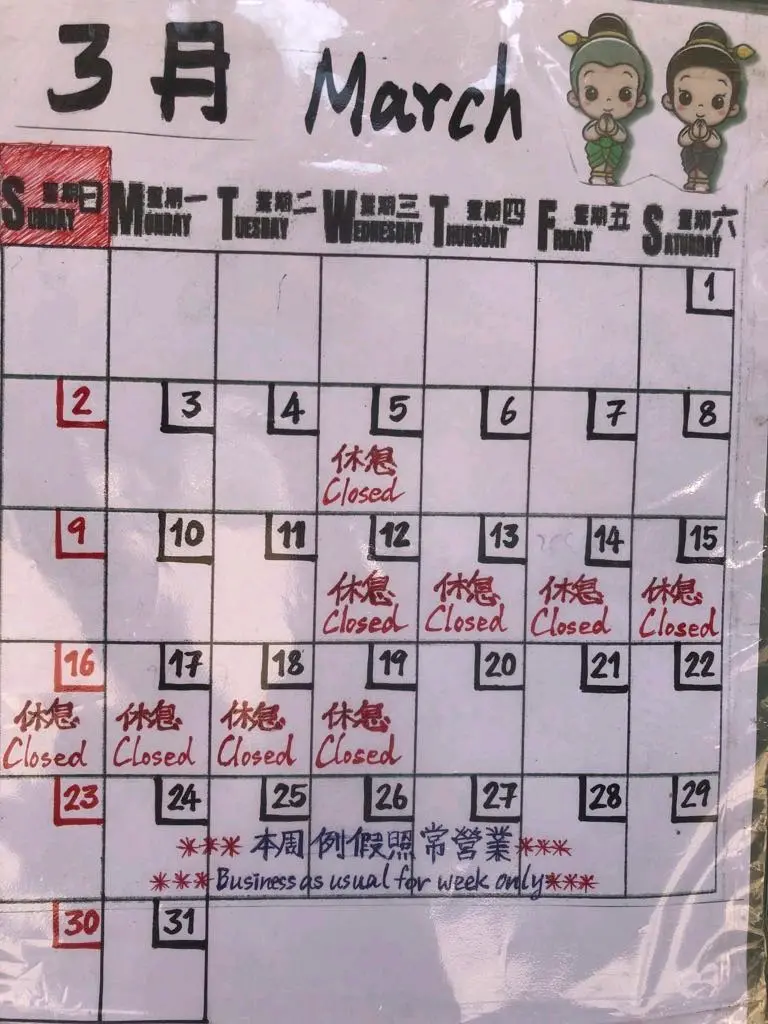 3月 March
SUNDAY 星期日 MONDAY 星期一 TUESDAY 星期二 WEDNESDAY 星期三 THURSDAY 星期四 FRIDAY 星期五 SATURDAY 星期六
1
2 3 4 5 6 7 8
休息
Closed
9 10 11 12 13 14 15
休息 休息 休息 休息
Closed Closed Closed Closed
16 17 18 19 20 21 22
休息 休息 休息 休息
Closed Closed Closed Closed
23 24 25 26 27 28 29
*** 本周例假照常營業***
***Business as usual for week only***
30 31